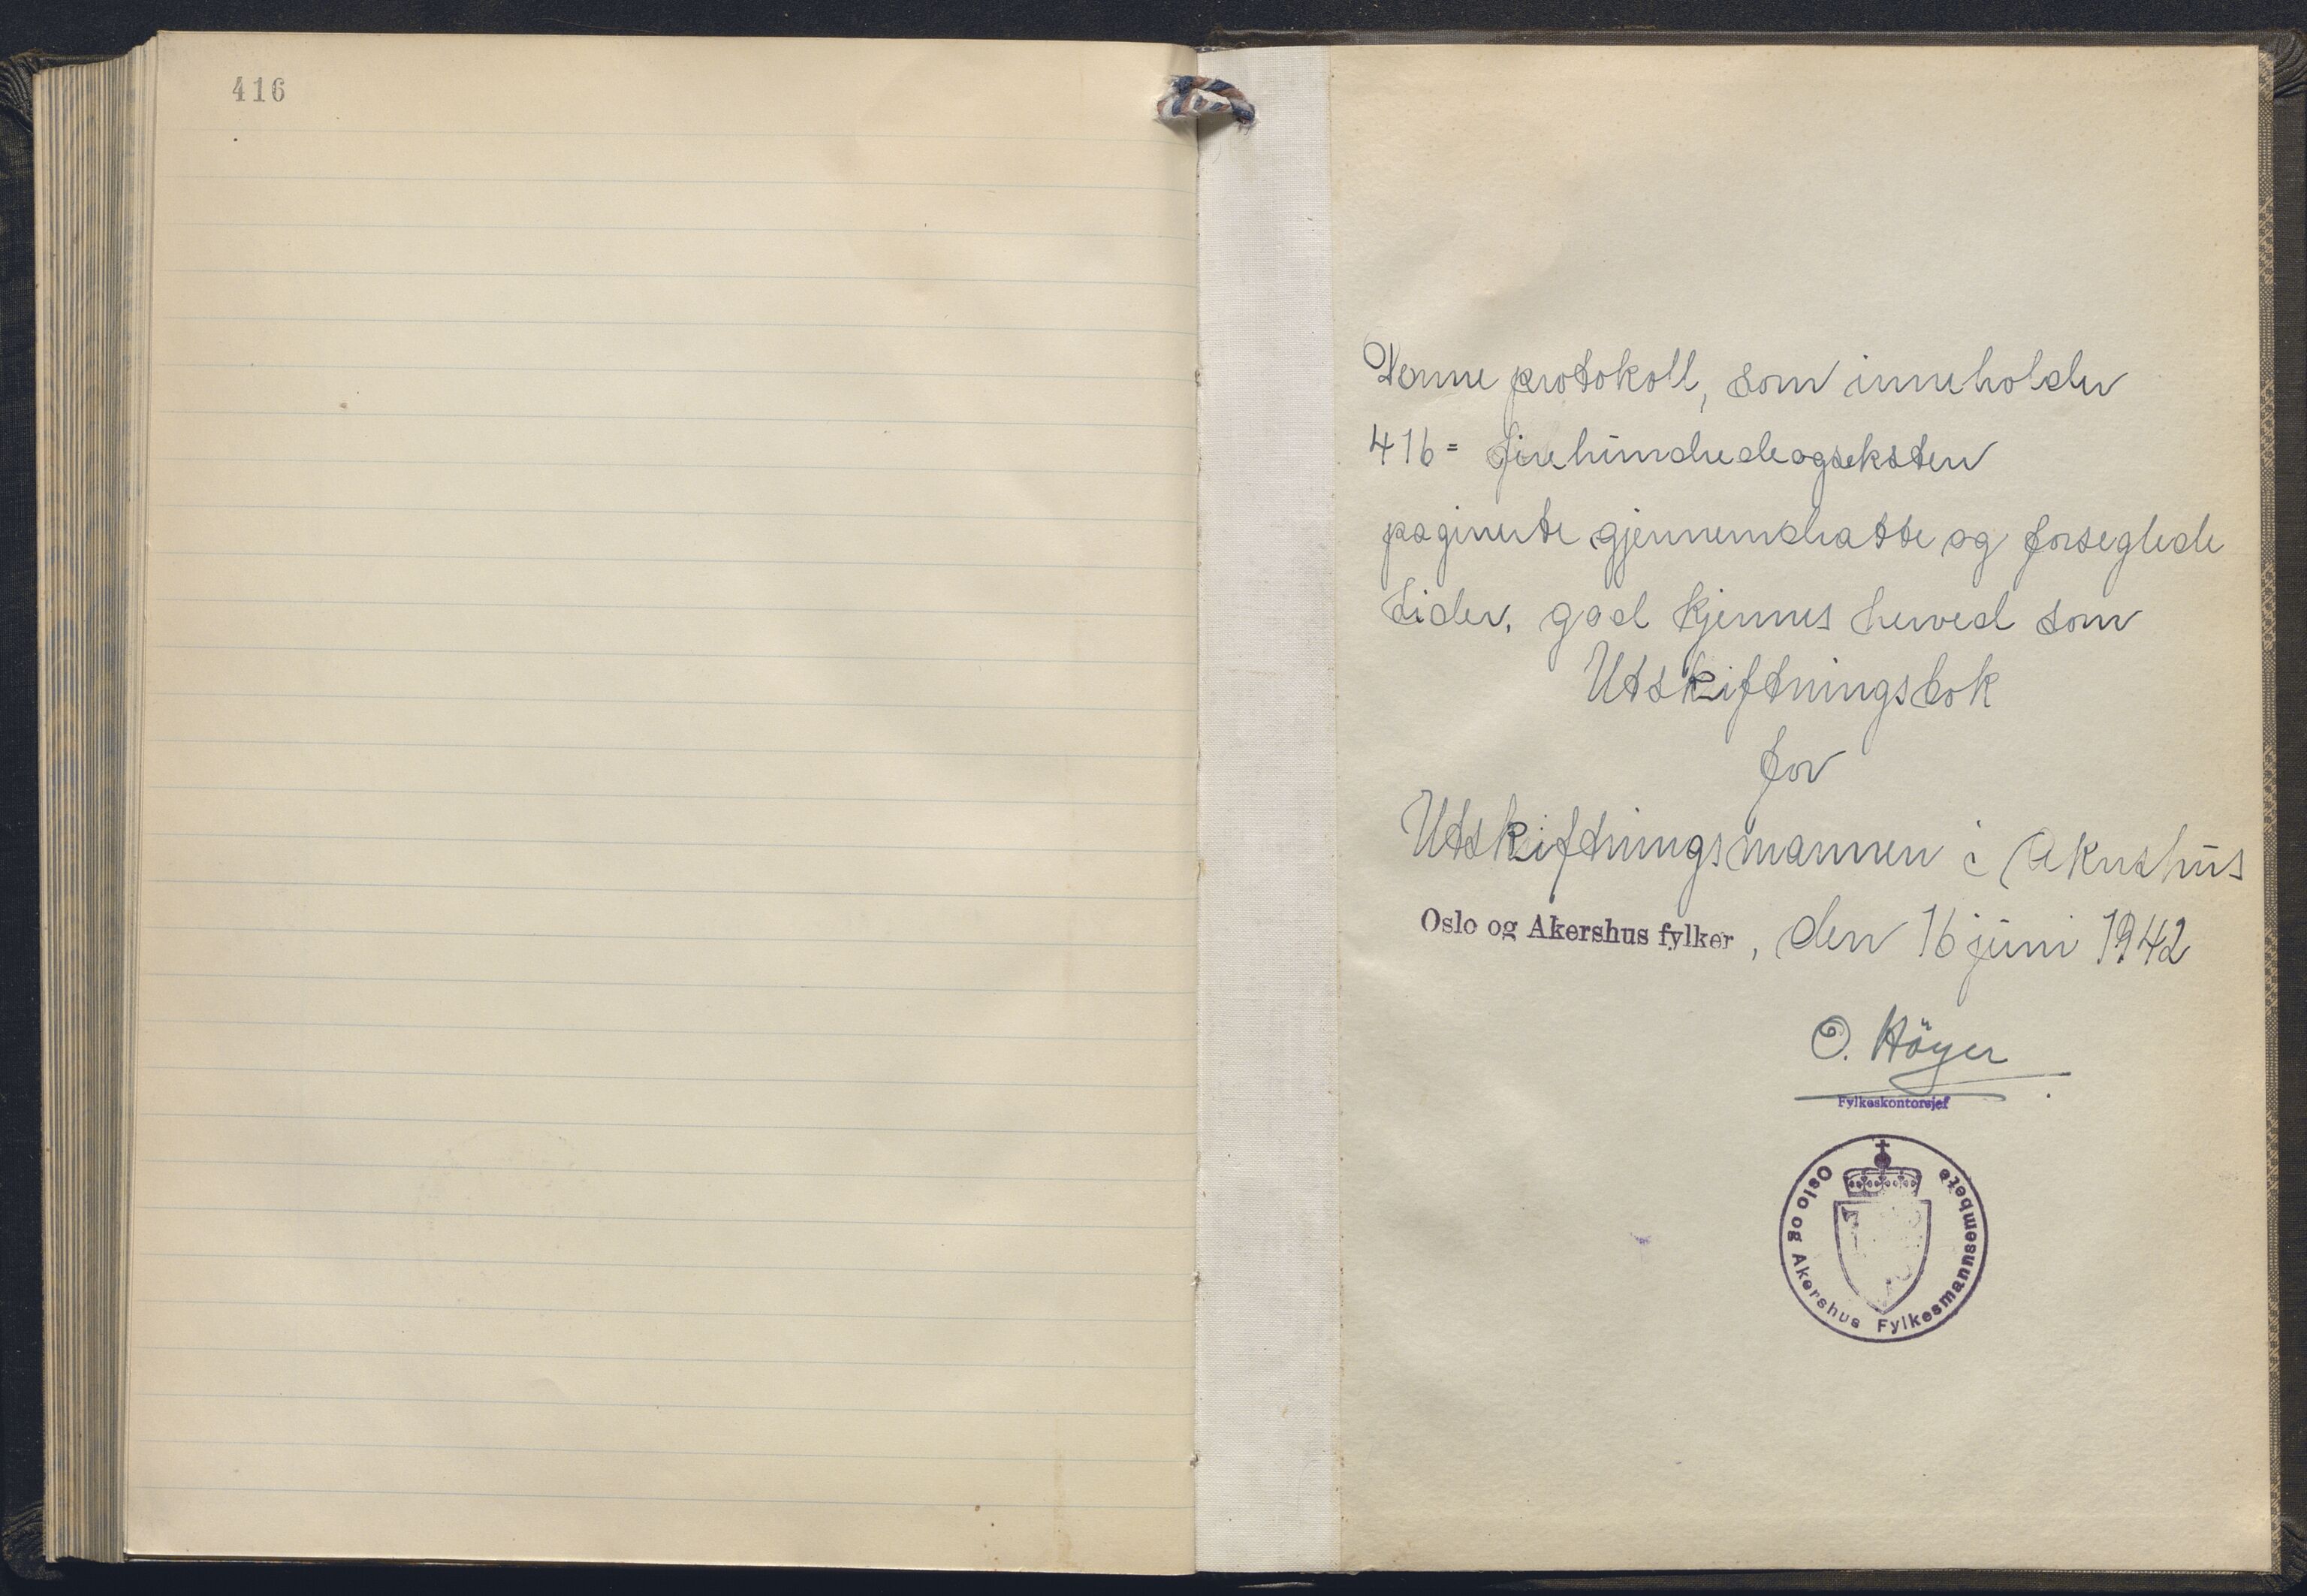 416
Denne protokoll, som inneholder
416 = firehundredeogseksten
paginerte gjennemdratte og forseglede
sider, god kjennes herved som
Utskiftningsbok
for
Utskiftningsmannen i Akershus
Oslo og Akershus fylker, den 16 juni 1942
O. Höyer
Fylkeskontorsjef
Oslo og Akershus Fylkesmannsembete